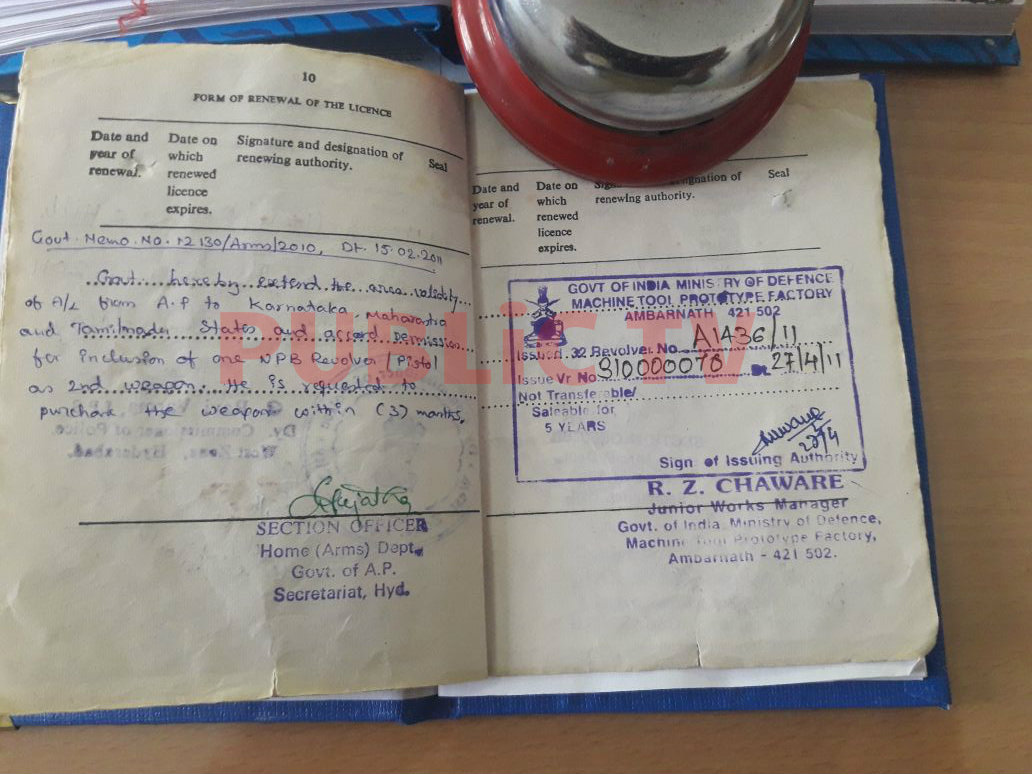 10
FORM OF RENEWAL OF THE LICENCE
Date and year of renewal.
Date on which renewed licence expires.
Signature and designation of renewing authority.
Seal
Govt. Memo. No. 12130/Arms/2010, Dt. 15.02.2011
Govt. hereby extend the area validity
of A/L from A.P to Karnataka Maharastra
and Tamilnadu States and accord permission
for inclusion of one NPB Revolver/Pistol
as 2nd weapon. He is requested to
purchase the weapon within (3) months.
SECTION OFFICER
Home (Arms) Dept.
Govt. of A.P.
Secretariat, Hyd.
Date and year of renewal.
Date on which renewed licence expires.
designation of renewing authority.
Seal
GOVT OF INDIA MINISTRY OF DEFENCE
MACHINE TOOL PROTOTYPE FACTORY
AMBARNATH 421 502
Issued .32 Revolver No. A1436/11
Issue Vr No. 27/4/11
Not Transferable/
Saleable for
5 YEARS
27/4
Sign of Issuing Authority
R. Z. CHAWARE
Junior Works Manager
Govt. of India, Ministry of Defence,
Machine Tool Prototype Factory,
Ambarnath - 421 502.
PUBLiC TV